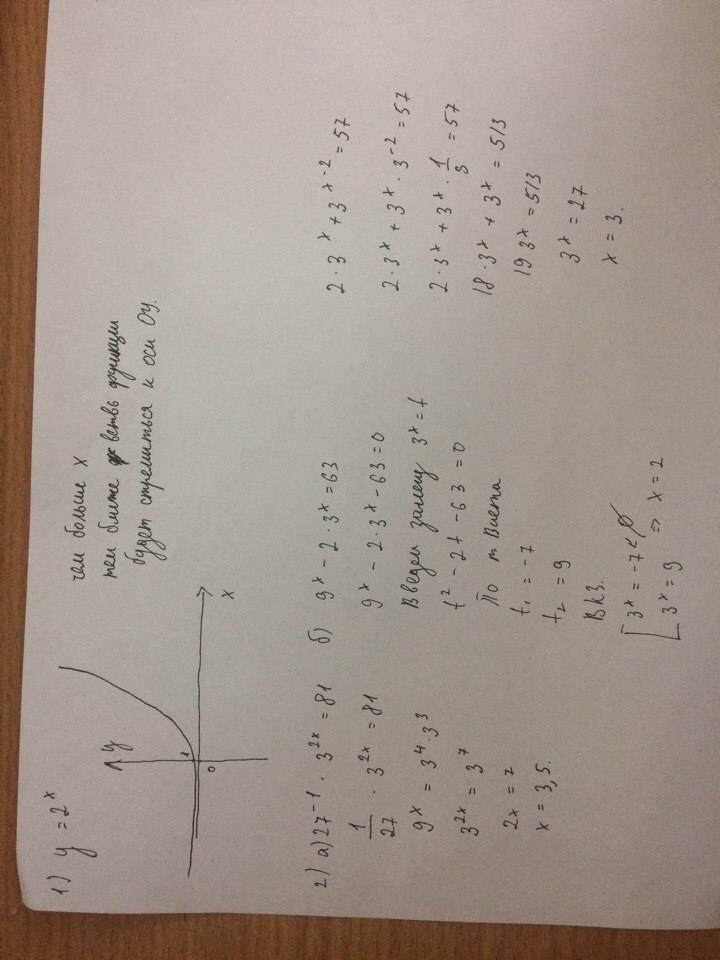 1) y = 2^x
y
1
0
x
чем больше x
тем ближе ветвь функции
будет стремиться к оси Оу.
2) а) 27^-1 · 3^2x = 81
1/27 · 3^2x = 81
9^x = 3^4 · 3^3
3^2x = 3^7
2x = 7
x = 3,5.
б) 9^x - 2 · 3^x = 63
9^x - 2 · 3^x - 63 = 0
Введем замену 3^x = t
t^2 - 2t - 63 = 0
По т Виета
t1 = -7
t2 = 9
В к з.
[ 3^x = -7 ∅
3^x = 9 => x = 2
2 · 3^x + 3^x-2 = 57
2 · 3^x + 3^x · 3^-2 = 57
2 · 3^x + 3^x · 1/9 = 57
18 · 3^x + 3^x = 513
19 3^x = 513
3^x = 27
x = 3.